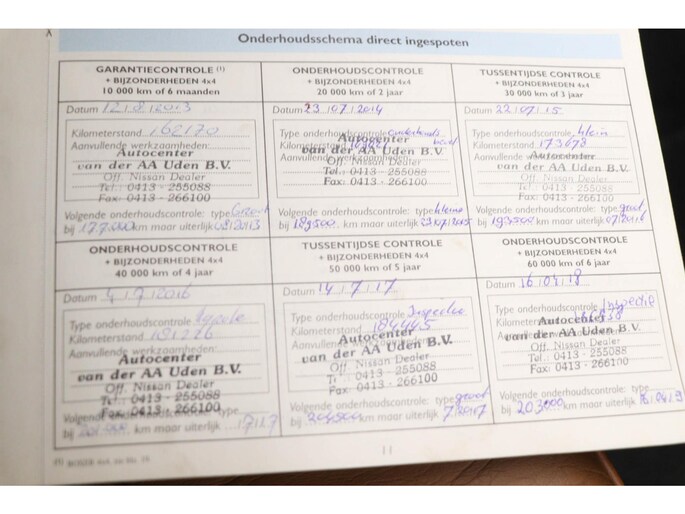 Onderhoudsschema direct ingespoten
GARANTIECONTROLE (1)
+ BIJZONDERHEDEN 4x4
10 000 km of 6 maanden
Datum
Kilometerstand 162170
Aanvullende werkzaamheden:
Autocenter
van der AA Uden B.V.
Off. Nissan Dealer
Tel.: 0413 - 255088
Fax: 0413 - 266100
Volgende onderhoudscontrole: type
bij km maar uiterlijk
ONDERHOUDSCONTROLE
+ BIJZONDERHEDEN 4x4
20 000 km of 2 jaar
Datum 23/07/2014
Type onderhoudscontrole
Kilometerstand
Aanvullende werkzaamheden:
Autocenter
van der AA Uden B.V.
Off. Nissan Dealer
Tel.: 0413 - 255088
Fax: 0413 - 266100
Volgende onderhoudscontrole: type kleine
bij km maar uiterlijk
TUSSENTIJDSE CONTROLE
+ BIJZONDERHEDEN 4x4
30 000 km of 3 jaar
Datum 22/07/15
Type onderhoudscontrole klein
Kilometerstand
Aanvullende werkzaamheden:
Autocenter
van der AA Uden B.V.
Off. Nissan Dealer
Tel.: 0413 - 255088
Fax: 0413 - 266100
Volgende onderhoudscontrole: type groot
bij km maar uiterlijk 07/2016
ONDERHOUDSCONTROLE
+ BIJZONDERHEDEN 4x4
40 000 km of 4 jaar
Datum 4/7/2016
Type onderhoudscontrole
Kilometerstand
Aanvullende werkzaamheden:
Autocenter
van der AA Uden B.V.
Off. Nissan Dealer
Tel.: 0413 - 255088
Fax: 0413 - 266100
Volgende onderhoudscontrole: type
bij km maar uiterlijk
TUSSENTIJDSE CONTROLE
+ BIJZONDERHEDEN 4x4
50 000 km of 5 jaar
Datum 14/7/17
Type onderhoudscontrole
Kilometerstand 184445
Aanvullende werkzaamheden:
Autocenter
van der AA Uden B.V.
Off. Nissan Dealer
Tel.: 0413 - 255088
Fax: 0413 - 266100
Volgende onderhoudscontrole: type groot
bij 204500 km maar uiterlijk
ONDERHOUDSCONTROLE
+ BIJZONDERHEDEN 4x4
60 000 km of 6 jaar
Datum 16/04/18
Type onderhoudscontrole Inspectie
Kilometerstand
Aanvullende werkzaamheden:
Autocenter
van der AA Uden B.V.
Off. Nissan Dealer
Tel.: 0413 - 255088
Fax: 0413 - 266100
Volgende onderhoudscontrole: type
bij 203000 km maar uiterlijk 16/04/19
11